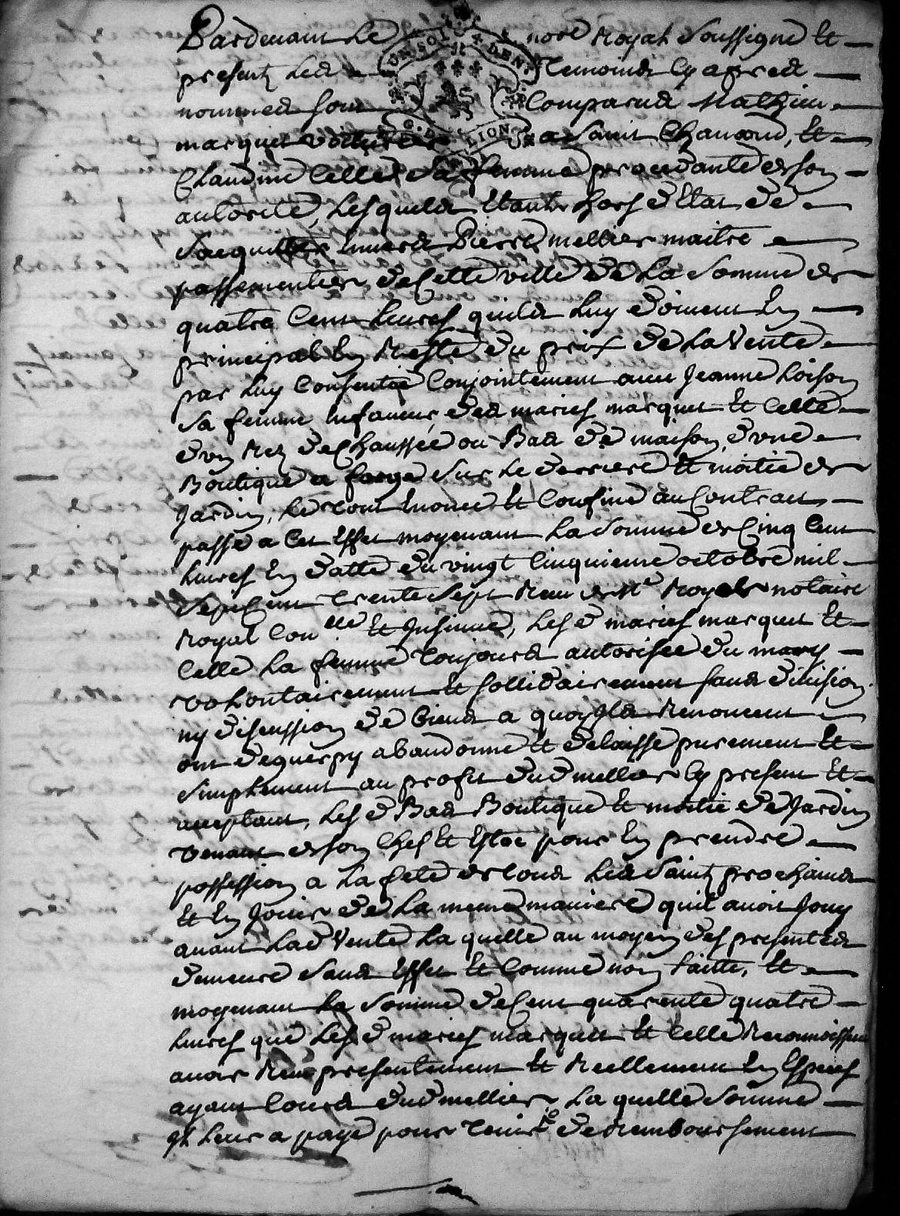 Pardevant Le nore Royal Soussigné Et
presentz Les Temoins Cy apres
nommes sont Comparus Mathieu
marquet voiturier a Saint Chamond, Et
Claudine Celle Sa femme procedante de son
autorité, Lesquels Etants hors d'Etat de
Sacquitter Envers Pierre mellier maitre
passementier de Cette ville De La Somme de
quatre Cent Livres quils Luy doivent En
principal En Reste Du prix De La Vente
par Luy Consentie Conjointement avec Jeanne Loison
Sa femme Enfaveur des maries marquet Et Celle
d'un Rez de Chaussée ou Bas De maison, d'une
Boutique a forge Sur Le derriere Et moitié de
Jardin, Le Tout Enoncé Et Confiné au Contrat
passé a Cet Effet moyenant La Somme de Cinq Cent
Livres En datte du vingt Cinquieme octobre mil
Sept Cent Trente Sept Receu de Me Royer notaire
Royal Con elle Et Insinué, Les d maries marquet Et
Celle La femme Toujours autorisée du mary
volontairement Et Sollidairement Sans division
ny discussion De biens a quoy Ils Renoncent
ont deguerpy abandonné Et delaissé purement Et
Simplement au profit dud mellier Cy present Et
acceptant, Les d Bas Boutique Et moitié De Jardin
venant de son Chef Et Estoc pour En prendre
possession a La fete de Tous Les Saintz prochaine
Et En Jouir De La meme maniere quil avoit Jouy
avant Lad Vente La quelle au moyen des presentes
demeure Sans Effet Et Comme non faitte, Et
moyenant La Somme de Cent quarente quatre
Livres que Les d maries marquet Et Celle Reconnoissent
avoir Receu presentement Et Reellement En Especes
ayant Cours dud mellier La quelle Somme
Il Leur a payé pour Tenir de Remboursement